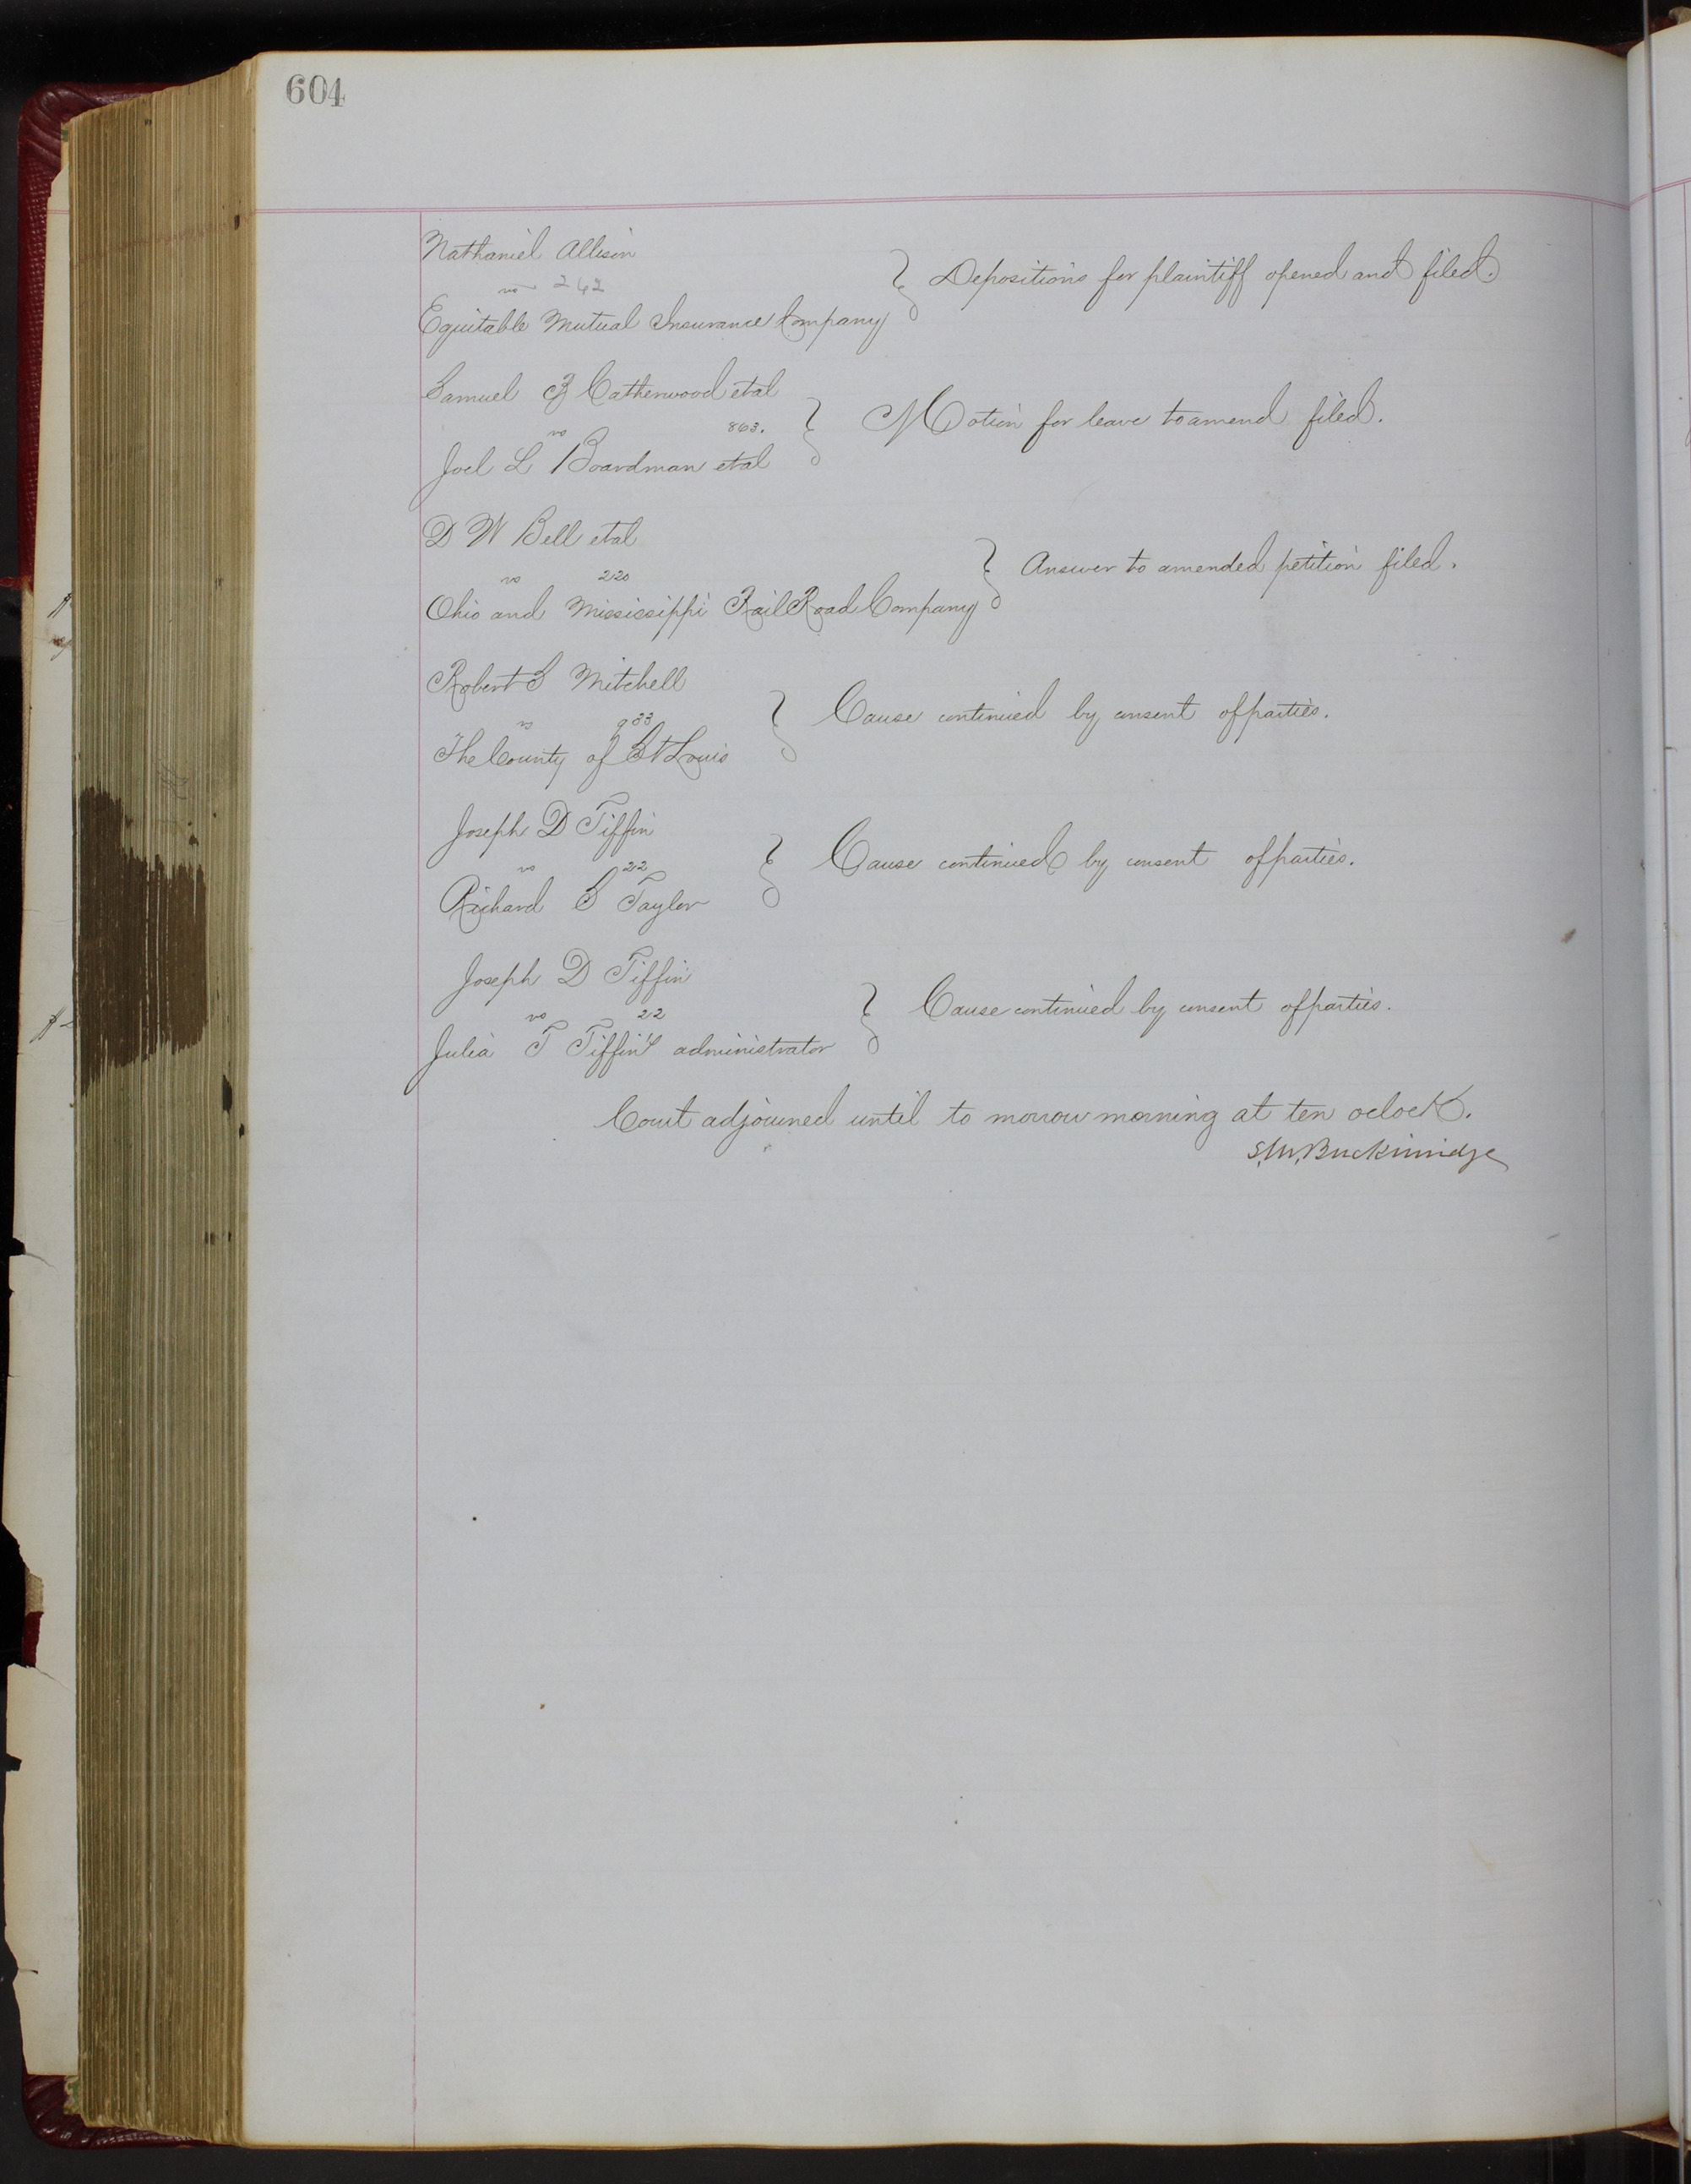 604
Nathaniel Allisin
vs 262
Equitable Mutual Insurance Company } Depositions for plaintiff opened and filed.
Samuel B Catherwood etal
vs 863.
Joel L Boardman etal } Motion for leave to amend filed.
D W Bell etal
vs 220
Ohio and Mississippi Rail Road Company } Answer to amended petition filed.
Robert S Mitchell
vs 933
The County of St Louis } Cause continued by consent of parties.
Joseph D Tiffin
vs 22
Richard S Taylor } Cause continued by consent of parties.
Joseph D Tiffin
vs 22
Julia T Tiffin's administrator } Cause continued by consent of parties.
Court adjourned until to morrow morning at ten oclock.
S.M. Breckinridge